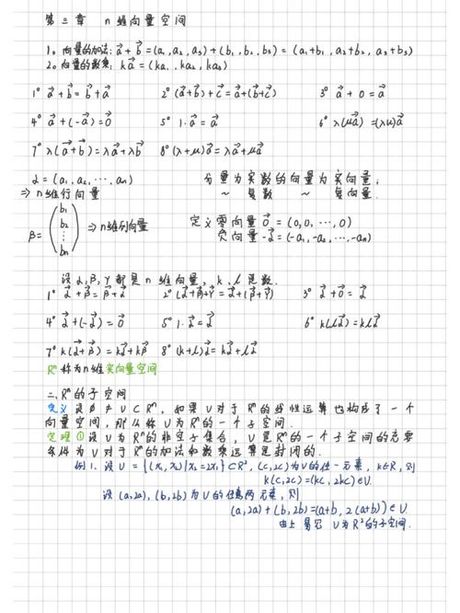 第三章 n维向量空间
1。向量的加法: a⃗ + b⃗ = (a₁, a₂, a₃) + (b₁, b₂, b₃) = (a₁+b₁, a₂+b₂, a₃+b₃)
2。向量的数乘: ka⃗ = (ka₁, ka₂, ka₃)
1° a⃗ + b⃗ = b⃗ + a⃗ 2° (a⃗+b⃗)+c⃗ = a⃗+(b⃗+c⃗) 3° a⃗ + 0 = a⃗
4° a⃗ + (-a⃗) = 0⃗ 5° 1·a⃗ = a⃗ 6° λ(μa⃗) = (λμ)a⃗
7° λ(a⃗+b⃗) = λa⃗+λb⃗ 8° (λ+μ)a⃗ = λa⃗+μa⃗
α = (a₁, a₂, ⋯, aₙ) 分量为实数的向量为实向量,
⇒ n维行向量 ~ 复数 ~ 复向量.
β = (b₁ b₂ ⋮ bₙ) ⇒ n维列向量 定义零向量 0⃗ = (0, 0, ⋯, 0)
负向量 -α⃗ = (-a₁, -a₂, ⋯, -aₙ)
设 α, β, γ 都是 n 维向量, k, l 是数.
1° α⃗ + β⃗ = β⃗ + α⃗ 2° (α⃗+β⃗)+γ⃗ = α⃗+(β⃗+γ⃗) 3° α⃗ + 0⃗ = α⃗
4° α⃗ + (-α⃗) = 0⃗ 5° 1·α⃗ = α⃗ 6° k(lα⃗) = klα⃗
7° k(α⃗+β⃗) = kα⃗+kβ⃗ 8° (k+l)α⃗ = kα⃗+lα⃗
Rⁿ 称为n维实向量空间
二、Rⁿ的子空间
定义 设 ∅ ≠ U ⊂ Rⁿ, 如果 U 对于 Rⁿ 的线性运算也构成了一个
向量空间, 那么称 U 为 Rⁿ 的一个子空间.
定理① 设 U 为 Rⁿ 的非空子集合, U 是 Rⁿ 的一个子空间的充要
条件为 U 对于 Rⁿ 的加法和数乘运算是封闭的.
例1. 设 U = {(x₁, x₂)|x₂=2x₁} ⊂ R², (c, 2c) 为 U 的任一元素, k∈R, 则
k(c, 2c) = (kc, 2kc) ∈ U.
设 (a, 2a), (b, 2b) 为 U 的任意两元素, 则
(a, 2a) + (b, 2b) = (a+b, 2(a+b)) ∈ U
由上易知 U 为 R² 的子空间.